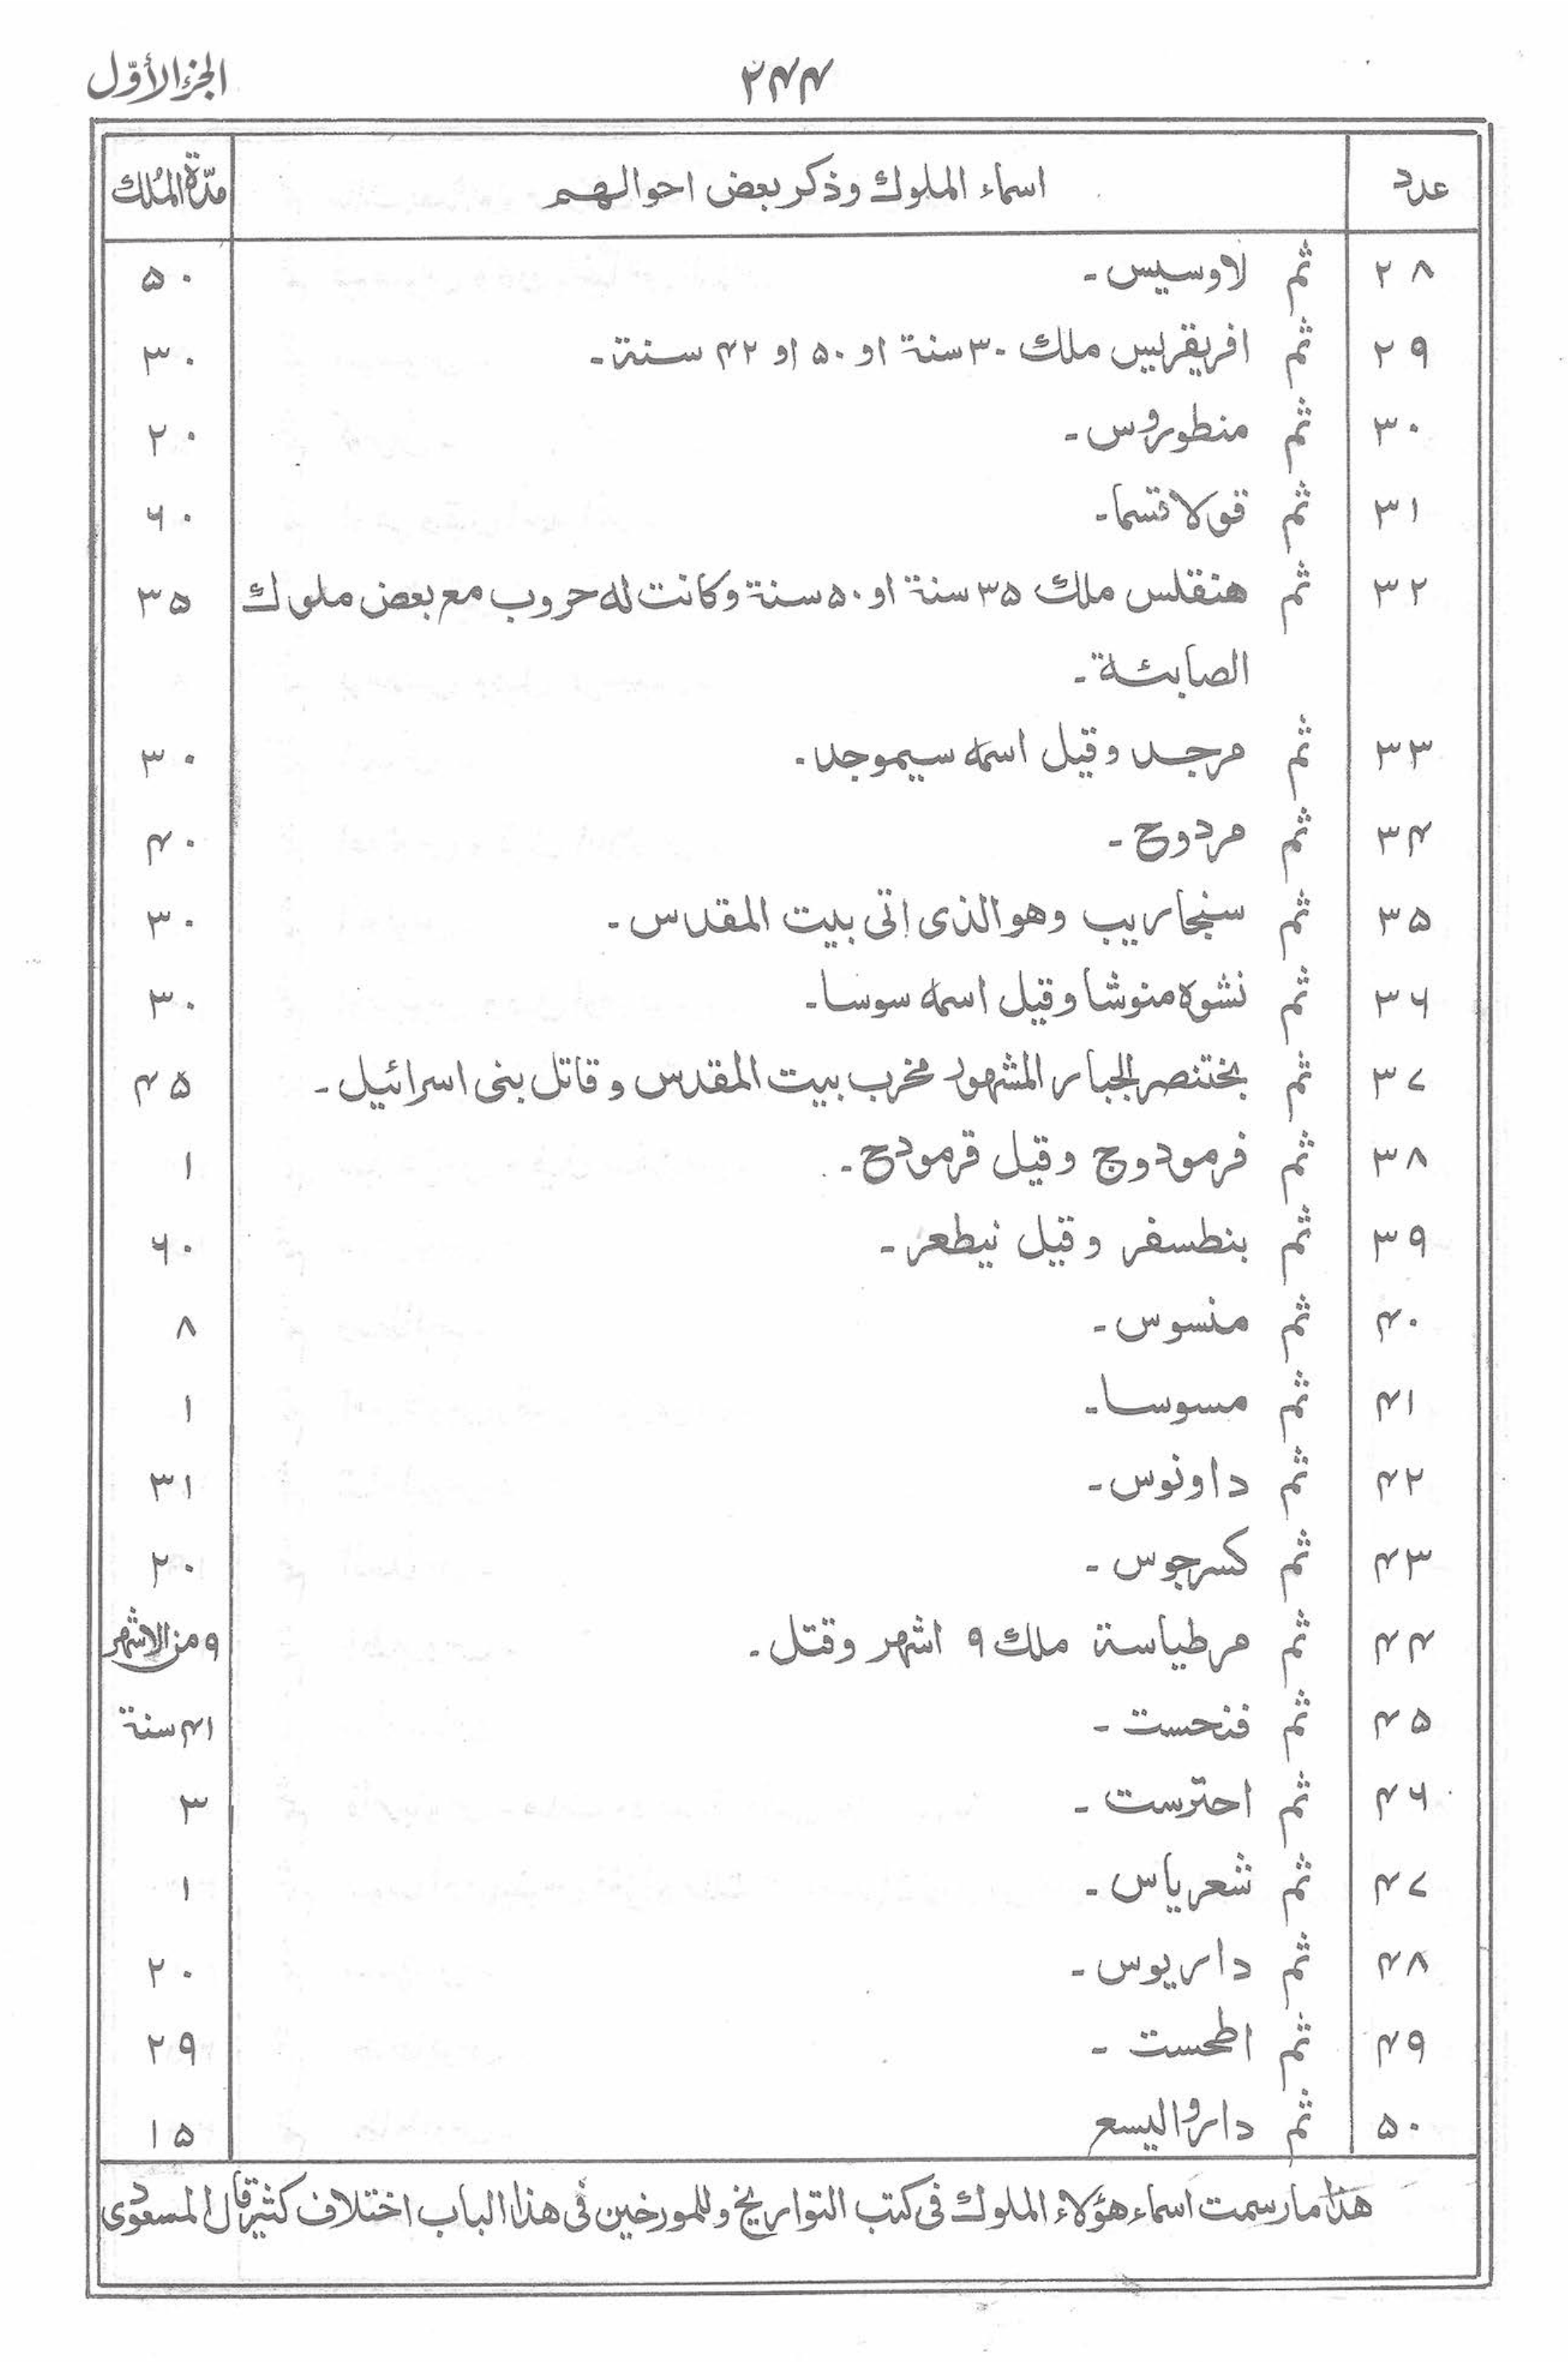 الجزء الأوّل
٢٤٤
عدد اسماء الملوك وذكر بعض احوالهم مدّة المُلك
٢٨ ثم لاوسيس - ٥٠
٢٩ ثم افريقريس ملك ٣٠ سنة او ٥٠ او ٤٢ سنة - ٣٠
٣٠ ثم منطوروس - ٢٠
٣١ ثم قولاقسما - ٦٠
٣٢ ثم هنقلس ملك ٣٥ سنة او ٥٠ سنة وكانت له حروب مع بعض ملوك ٣٥
الصابئة -
٣٣ ثم مرجد وقيل اسمه سيموجد - ٣٠
٣٤ ثم مردوح - ٤٠
٣٥ ثم سنجاريب وهو الذى اتى بيت المقدس - ٣٠
٣٦ ثم نشوه منوشا وقيل اسمه سوسا - ٣٠
٣٧ ثم بختنصر الجبار المشهور مخرب بيت المقدس و قاتل بنى اسرائيل - ٤٥
٣٨ ثم فرمودوج وقيل قرمودح - ١
٣٩ ثم بنطسفر وقيل نيطعر - ٦٠
٤٠ ثم منسوس - ٨
٤١ ثم مسوسا - ١
٤٢ ثم داونوس - ٣١
٤٣ ثم كسرجوس - ٢٠
٤٤ ثم مرطياسة ملك ٩ اشهر وقتل - ٩ من الاشهر
٤٥ ثم فنحست - ٤١ سنة
٤٦ ثم احترست - ٣
٤٧ ثم شعرياس - ١
٤٨ ثم داريوس - ٢٠
٤٩ ثم اطحست - ٢٩
٥٠ ثم دارو اليسع ١٥
هذا ما رسمت اسماء هؤلاء الملوك فى كتب التواريخ وللمورخين فى هذا الباب اختلاف كثير قال المسعودى